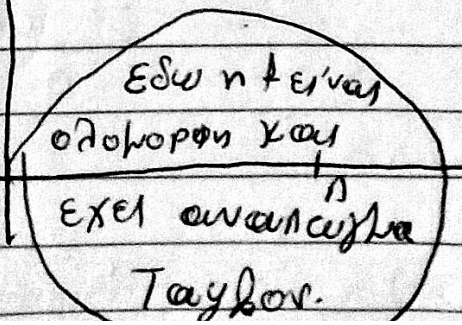 εδω η f είναι
ολομορφη και
εχει αναπτυγμα
Taylor.